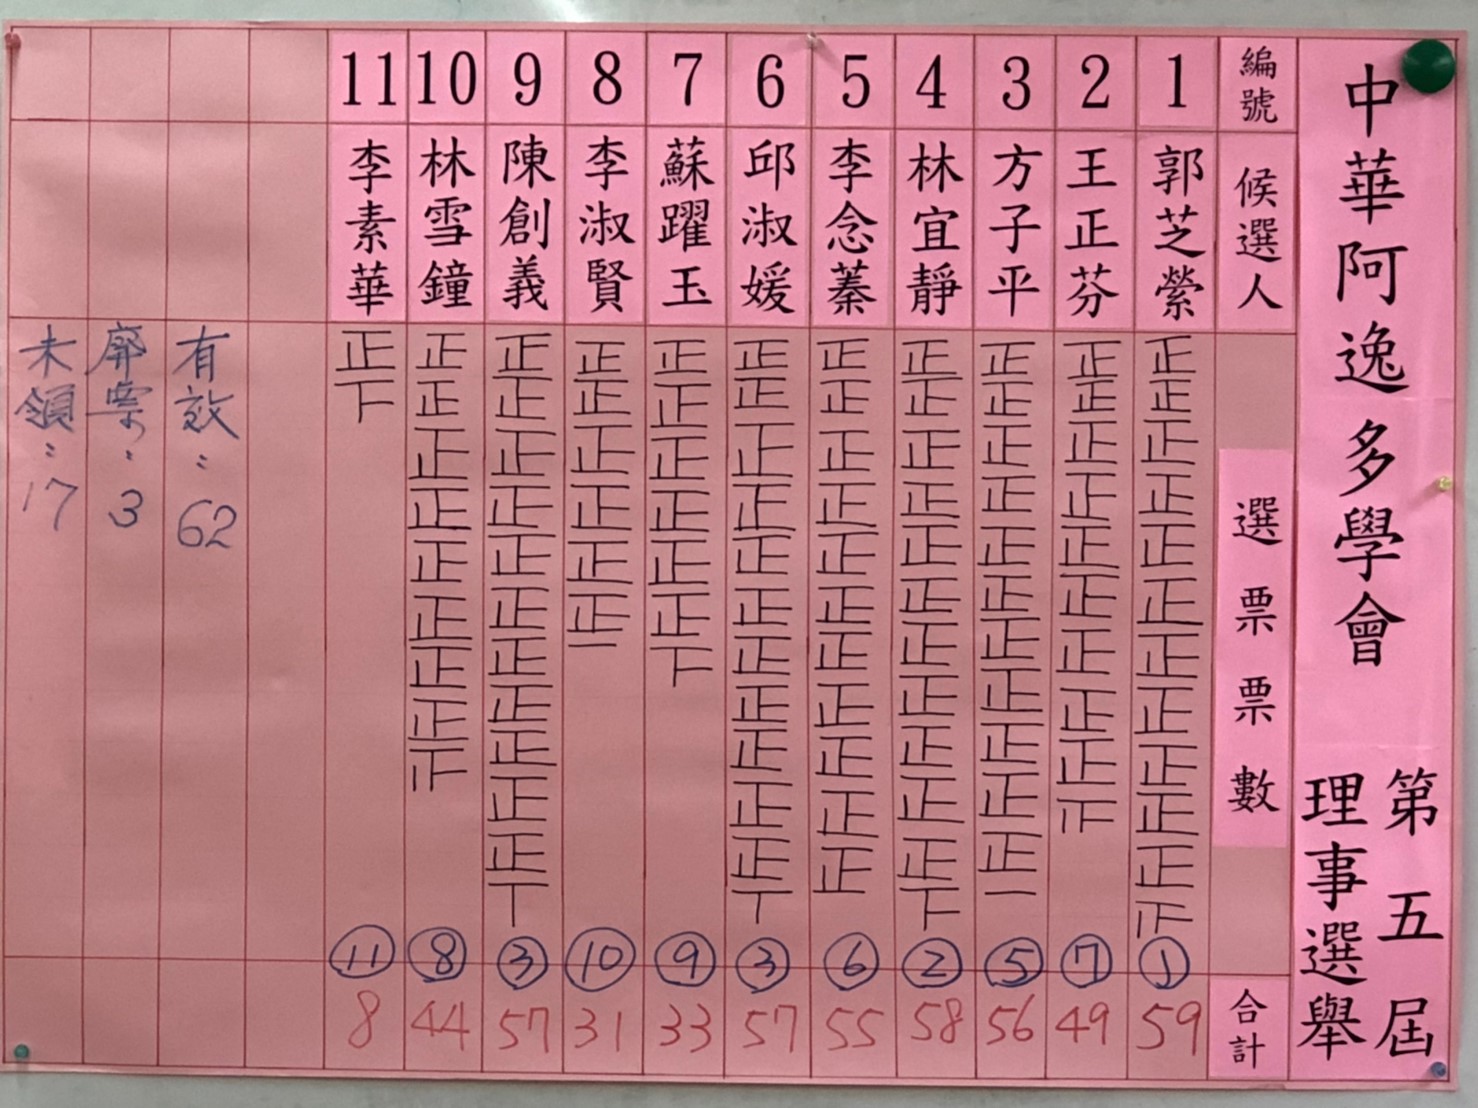 中華阿逸多學會
第五屆
理事選舉
編號
候選人
選票票數
合計
1
郭芝縈
正正正正正正正正正正正
①
59
2
王正芬
正正正正正正正正正
⑦
49
3
方子平
正正正正正正正正正正正一
⑤
56
4
林宜靜
正正正正正正正正正正正下
②
58
5
李念蓁
正正正正正正正正正正正
⑥
55
6
邱淑媛
正正正正正正正正正正正丅
③
57
7
蘇躍玉
正正正正正正下
⑨
33
8
李淑賢
正正正正正正一
⑩
31
9
陳創義
正正正正正正正正正正正丅
③
57
10
林雪鐘
正正正正正正正正
⑧
44
11
李素華
正下
⑪
8
有效：62
廢票：3
未領：17